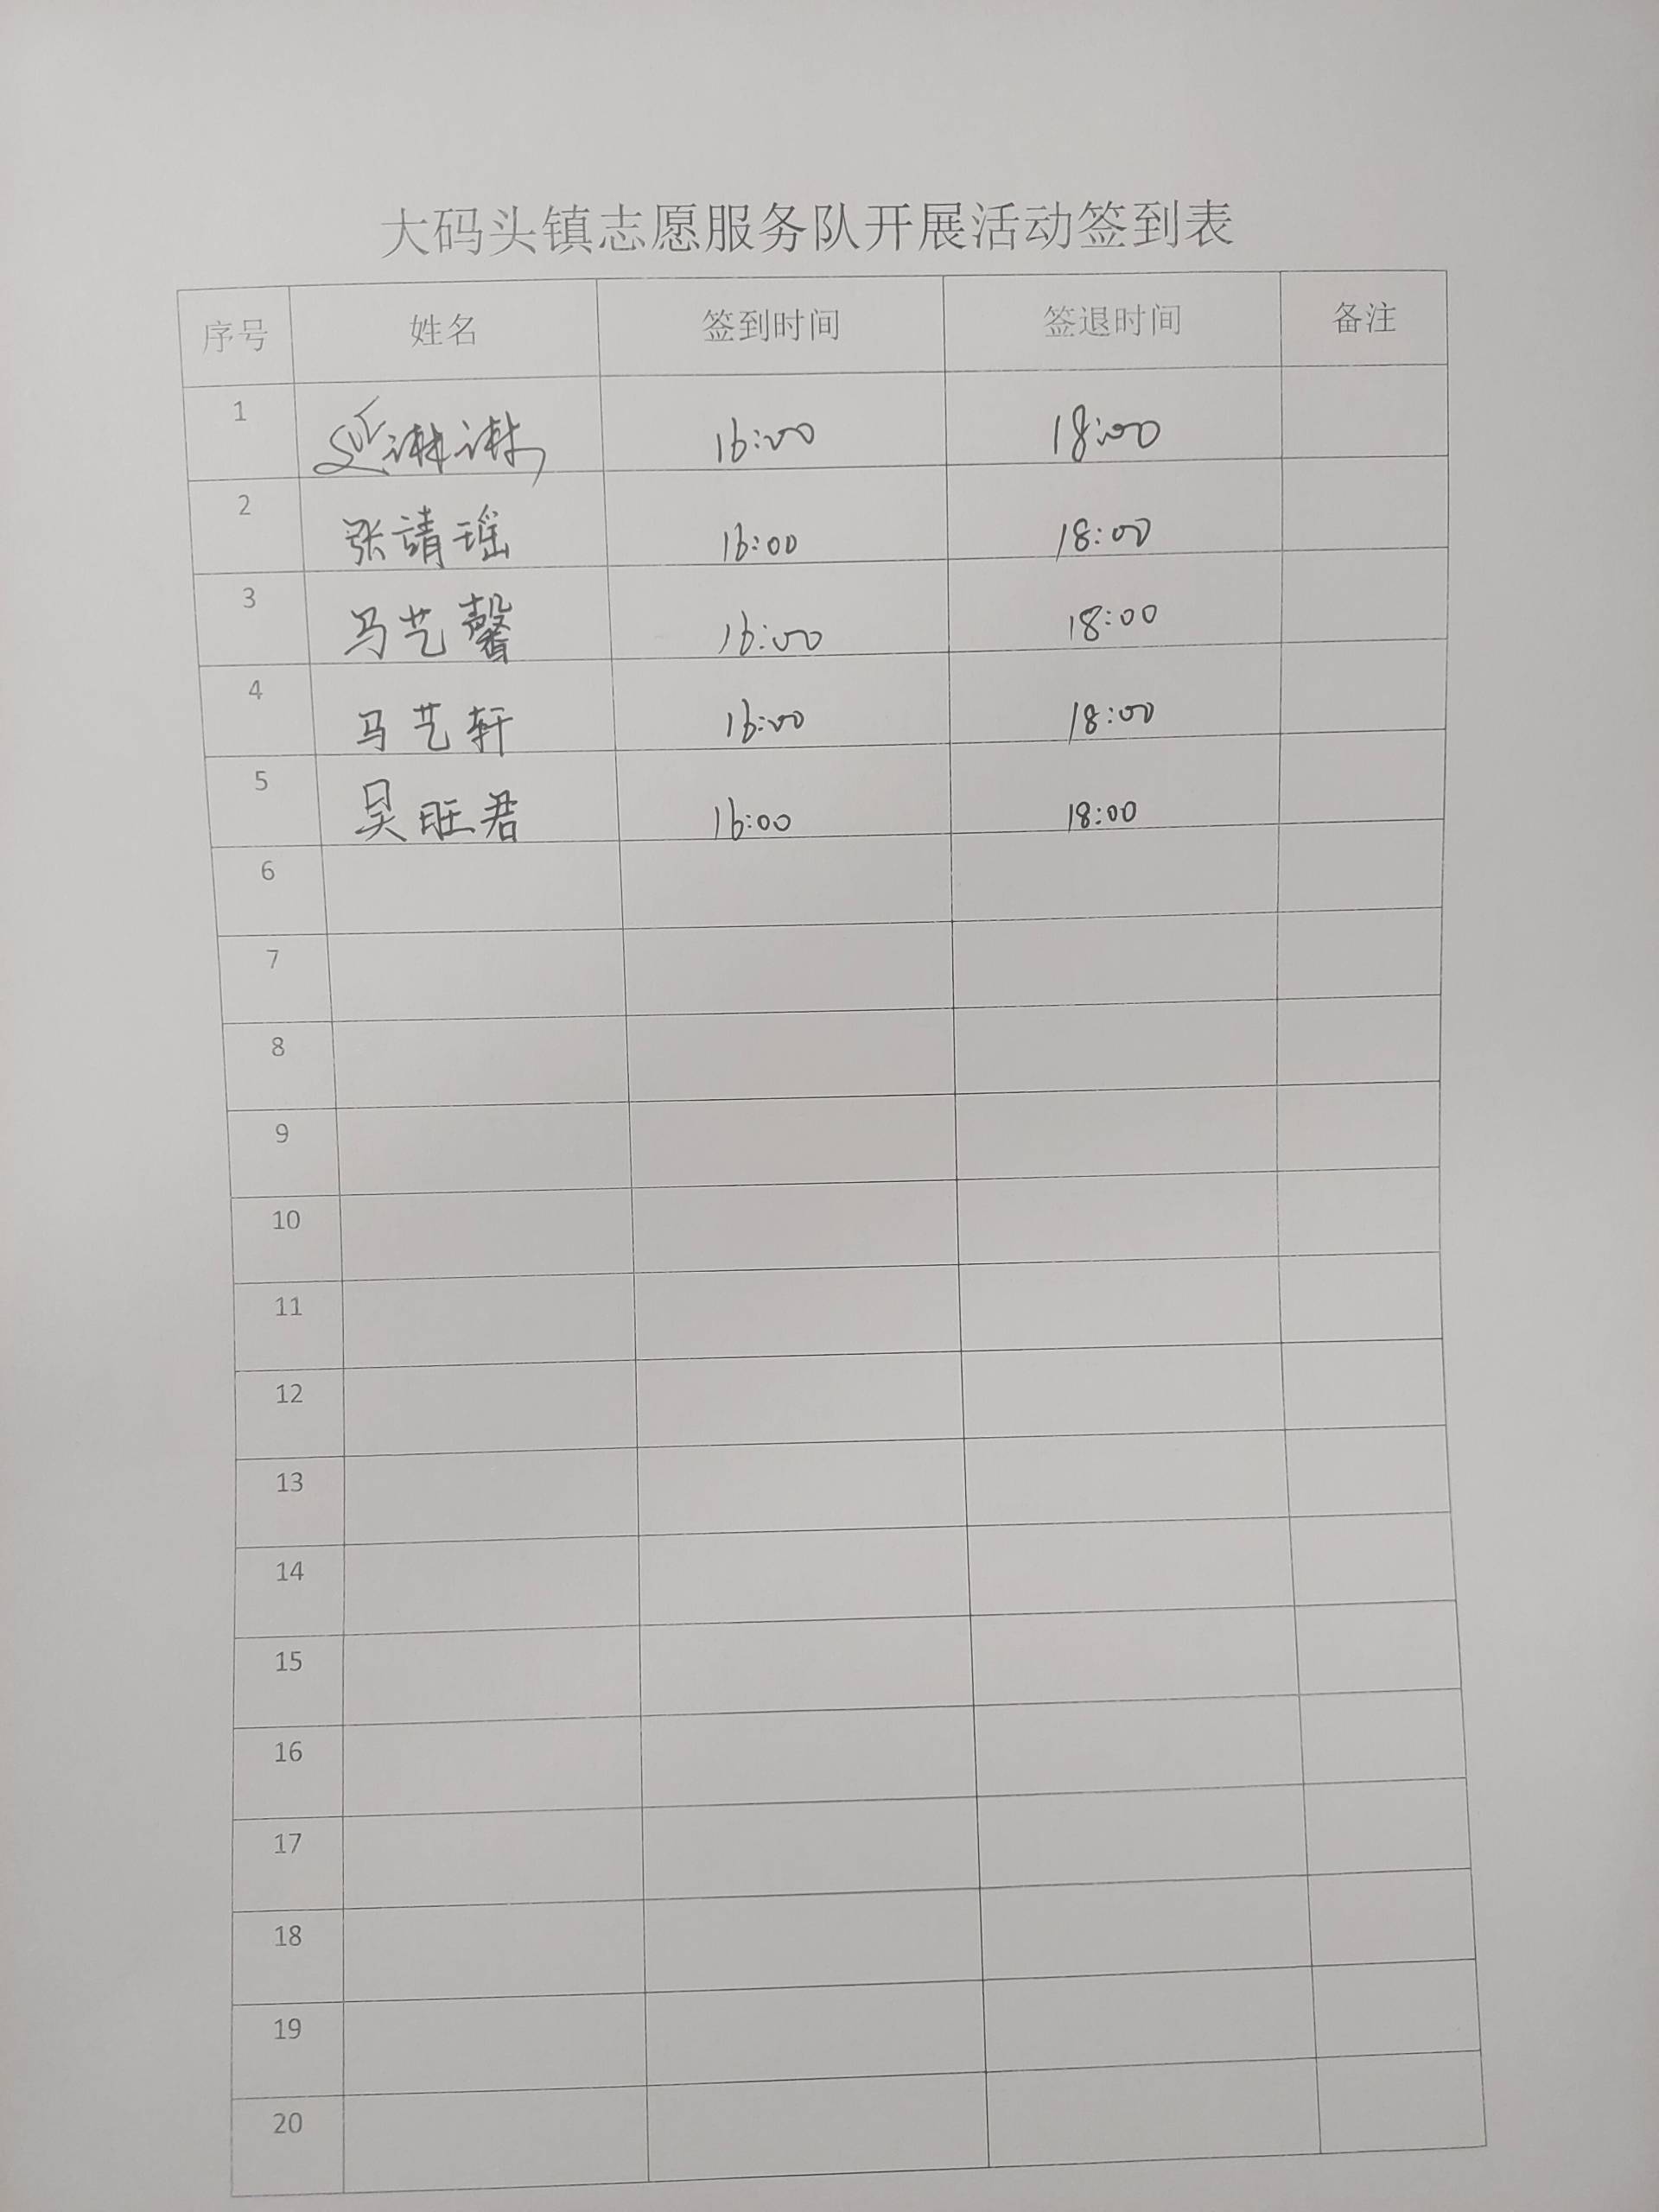 大码头镇志愿服务队开展活动签到表
序号 姓名 签到时间 签退时间 备注
1 延淋淋 16:00 18:00
2 张靖瑶 16:00 18:00
3 马艺馨 16:00 18:00
4 马艺轩 16:00 18:00
5 吴旺君 16:00 18:00
6
7
8
9
10
11
12
13
14
15
16
17
18
19
20